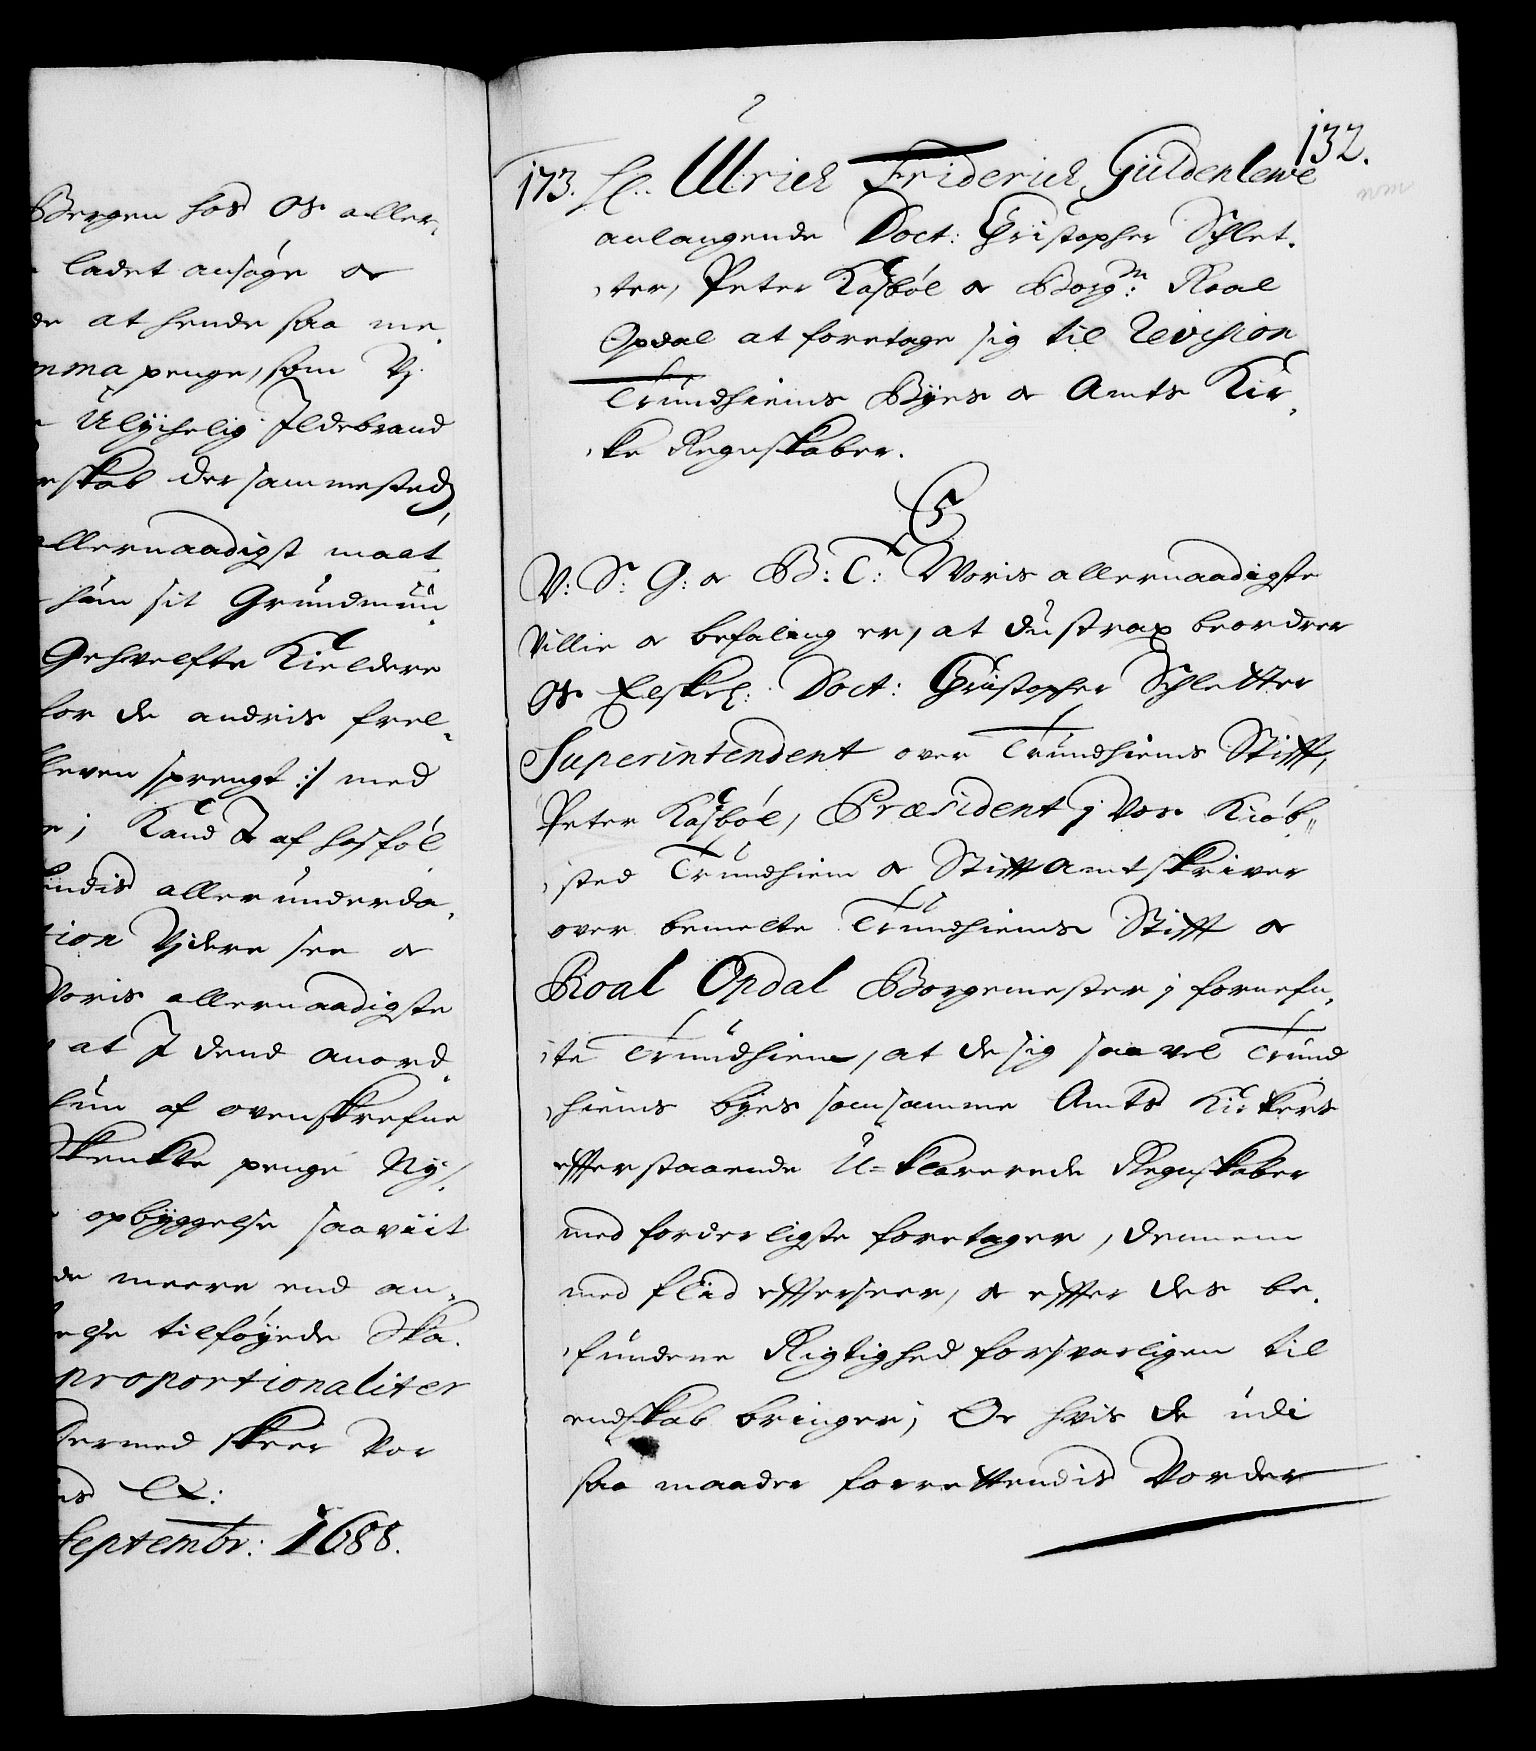 Bergen hos Os aller,
ladet ansøge oc
de at hende saa me,
mma penge, som Vj
Ulychelig Ildebrand
skab dersammesteds,
allernaadigst maat
hun sit Grundmuu,
Gehvelfte Kieldere
for de andris frel,
bleven sprengt :/ med
j Kand I af hosføl
endis allerunderda,
tion Vjdere see oc
Voris allernaadigste
at I dend anord,
hun af ovenskrefne
Skenkte penge Ny/,
opbyggelse saaviit
de meere end an,
else tilføyede Ska,
proportionaliter
Dermed skeer Vor
is etc:
Septembr: 1688.
132.
173. H. Ulrich Friderich Güldenlewe
anlangende Doct: Christopher Schlet,
ter, Peter Kasbøl oc Borgm: Roal
Opdal at foretage sig til Revision
Trundhiems Byes oc Amts Kir,
ke Regnskaber.
C5
V: S: G: oc B: T: Woris allernaadigste
Villie oc befaling er, at du strax beordrer
Os Elskel: Doct: Christopher Schletter
Superintendent over Trundhiems Stifft,
Peter Kasbøl, Præsident j Vor Kiøb,,
sted Trundhiem oc Stifftamtskriver
over bemelte Trundhiems Stifft oc
Roal Opdal Borgemester j fornefn,
te Trundhiem, at de sig saavel Trund
hiems byes som samme Amts Kirkers
efferstaaende U-klarerede Regnskaber
med forderligste foretager, dennem
med fliid effterseer, oc effter des be,
fundene Rigtighed forsvarligen til
endskab bringer; Oc hvis de udi
saa maader forrettendis Vorder